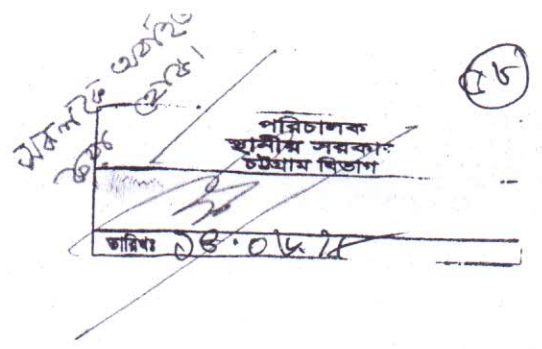 সকলকে অবহিত
করা হোক।
৫৮
পরিচালক
স্থানীয় সরকার
চট্টগ্রাম বিভাগ
তারিখঃ